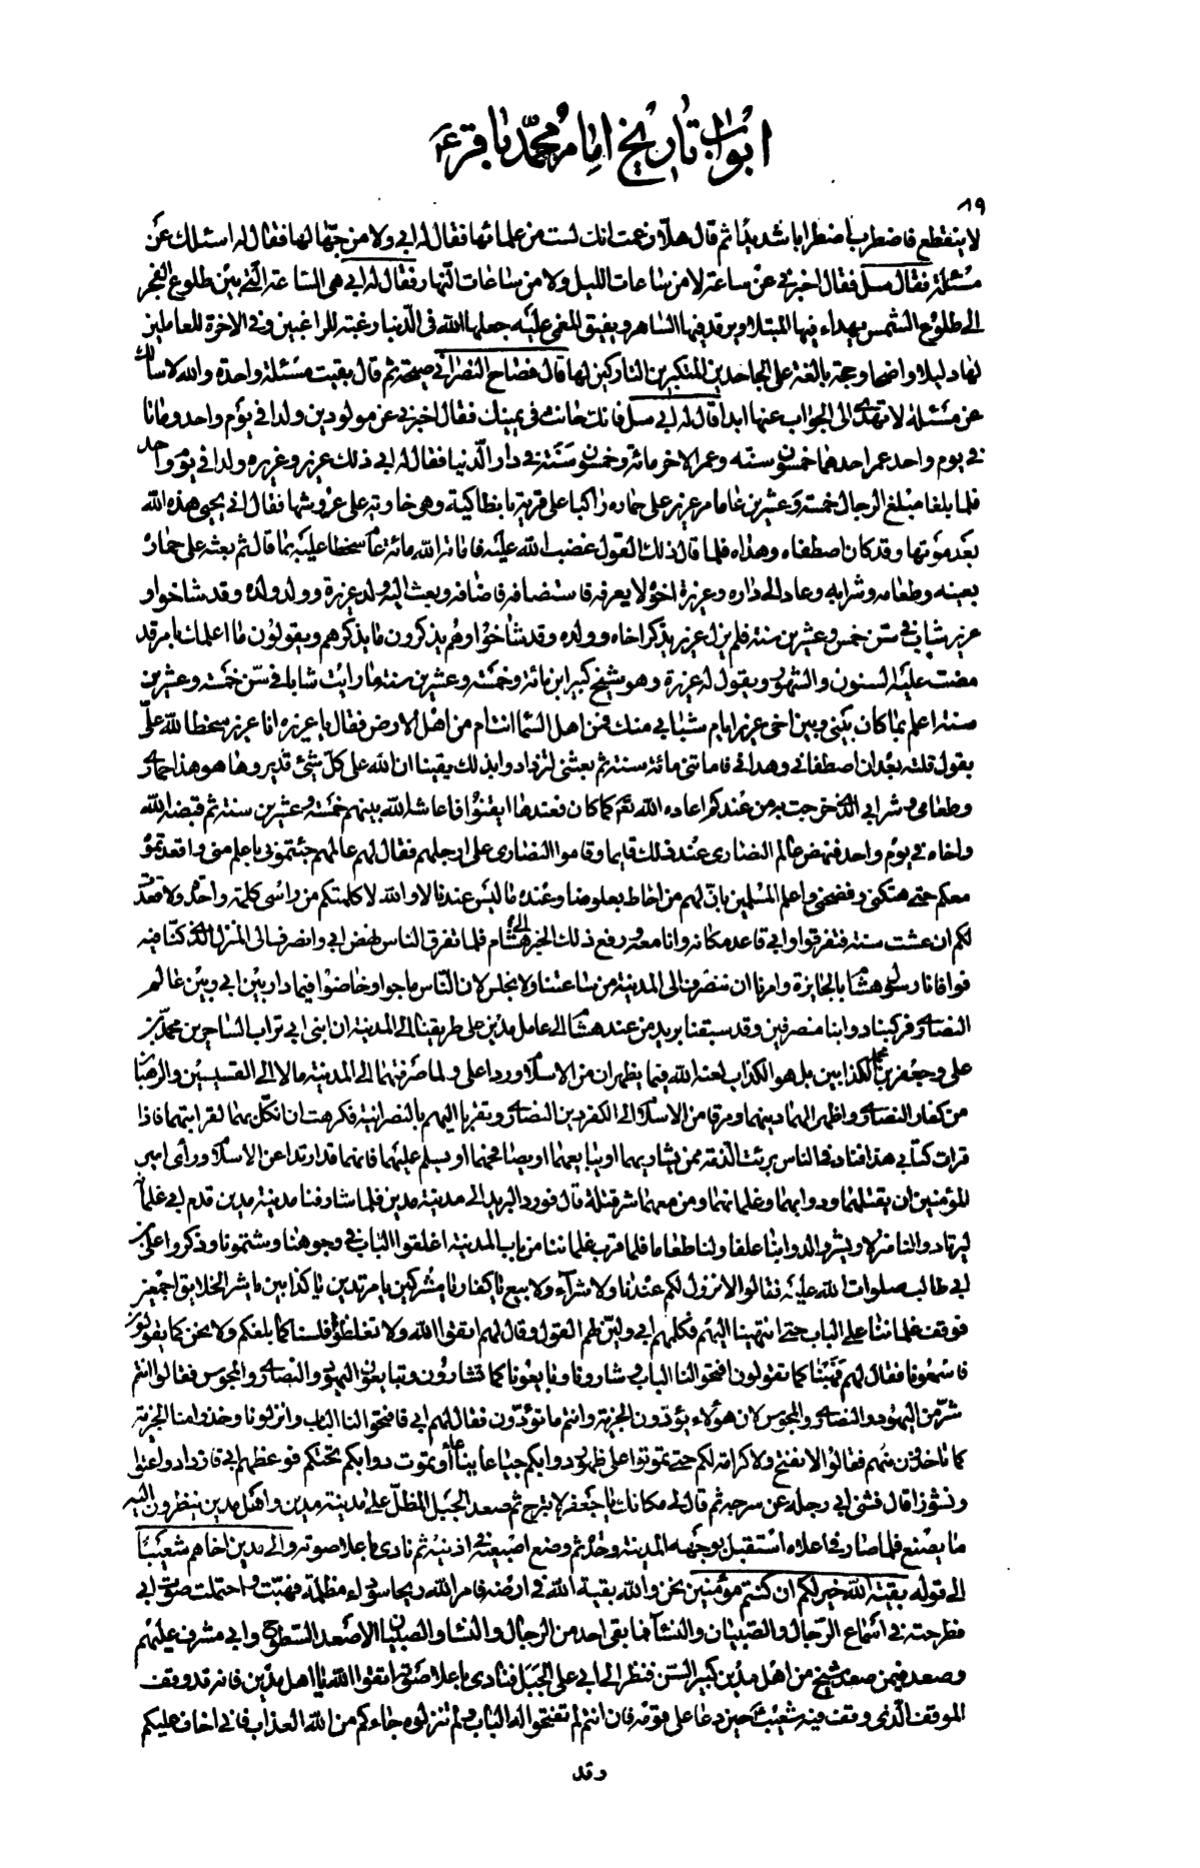 ابواب تاريخ امام محمد باقر ع
٨٩
لا ينقطع فاضطرب اضطرابا شديدا ثم قال هلا زعمت انك لست من علمائها فقال له ابى ولا من جهالها فقال له اسئلك عن
مسئلة فقال سل فقال اخبرنى عن ساعة لا من ساعات الليل ولا من ساعات النهار فقال له ابى هى الساعة التى بين طلوع الفجر
الى طلوع الشمس يهداء فيها المبتلا ويرقد فيها الساهر ويفيق المغمى عليه جعلها الله فى الدنيا رغبة للراغبين وفى الاخرة للعاملين
لها دليلا واضحا وحجة بالغة على الجاحدين المنكرين التاركين لها قال فصاح النصرانى صيحة ثم قال بقيت مسئلة واحدة والله لاسألك
عن مسئلة لا تهتدى الى الجواب عنها ابدا قال له ابى سل فانك حانث فى يمينك فقال اخبرنى عن مولودين ولدا فى يوم واحد وماتا
فى يوم واحد عمر احدهما خمسون سنة وعمر الاخر مائة وخمسون سنة فى دار الدنيا فقال له ابى ذلك عزير وعزيره ولدا فى يوم واحد
فلما بلغا مبلغ الرجال خمسة وعشرين عاما مر عزير على حماره راكبا على قرية بانطاكية وهى خاوية على عروشها فقال انى يحيى هذه الله
بعد موتها وقد كان اصطفاه وهداه فلما قال ذلك القول غضب الله عليه فاماته الله مائة عام سخطا عليه بما قال ثم بعثه على حماره
بعينه وطعامه وشرابه وعاد الى داره وعزيرة اخوه لا يعرفه فاستضافه فاضافه وبعث اليه ولد عزيرة وولد ولده وقد شاخوا و
عزير شاب فى سن خمس وعشرين سنة فلم يزل عزير يذكر اخاه وولده وقد شاخوا وهم يذكرون ما يذكرهم ويقولون ما اعلمك بامر قد
مضت عليه السنون والشهور ويقول له عزيرة وهو شيخ كبير ابن مائة وخمسة وعشرين سنة ما رايت شابا فى سن خمسة وعشرين
سنة اعلم بما كان بينى وبين اخى عزير ايام شبابى منك فمن اهل السما انت ام من اهل الارض فقال يا عزيره انا عزير سخط الله على
بقول قلته بعد ان اصطفانى وهدانى فاماتنى مائة سنة ثم بعثنى لتزدادوا بذلك يقينا ان الله على كل شىء قدير وها هو هذا حمارى
وطعامى وشرابى الذى خرجت به من عندكم اعاده الله تعالى كما كان فعندها ايقنوا فاعاشه الله بينهم خمسة وعشرين سنة ثم قبضه الله
واخاه فى يوم واحد فنهض عالم النصارى عند ذلك قايما وقاموا النصارى على ارجلهم فقال لهم عالمهم جئتمونى باعلم منى واقعدتموه
معكم حتى هتكنى وفضحنى واعلم المسلمين بان لهم من احاط بعلومنا وعنده ما ليس عندنا لا والله لا كلمتكم من راسى كلمة واحدة ولا قعدت
لكم ان عشت سنة فتفرقوا وابى قاعد مكانه وانا معه ورفع ذلك الخبر الى هشام فلما تفرق الناس نهض ابى وانصرف الى المنزل الذى كنا فيه
فوافانا رسول هشام بالجايزة وامرنا ان ننصرف الى المدينة من ساعتنا ولا نجلس لان الناس ماجوا وخاضوا فيما دار بين ابى وبين عالم
النصارى فركبنا دوابنا منصرفين وقد سبقنا بريد من عند هشام الى عامل مدين على طريقنا الى المدينة ان ابنى ابى تراب الساحرين محمد بن
على وجعفر بن محمد الكذابين بل هو الكذاب لعنه الله فيما يظهران من الاسلام وردا على ولما صرفتهما الى المدينة مالا الى القسيسين والرهبان
من كفار النصارى واظهرا لهما دينهما ومرقا من الاسلام الى الكفر دين النصارى وتقربا اليهم بالنصرانية فكرهت ان انكل بهما لقرابتهما فاذا
قرات كتابى هذا فناد فى الناس برئت الذمة ممن يشاريهما او يبايعهما او يصافحهما او يسلم عليهما فانهما قد ارتدا عن الاسلام وراى امير
المؤمنين ان يقتلهما ودوابهما وغلمانهما ومن معهما شر قتلة قال فورد البريد الى مدينة مدين فلما شارفنا مدينة مدين قدم ابى غلمانه
ليرتادوا لنا منزلا ويشروا لدوابنا علفا ولنا طعاما فلما قرب غلماننا من باب المدينة اغلقوا الباب فى وجوهنا وشتمونا وذكروا على بن
ابى طالب صلوات الله عليه فقالوا لا نزول لكم عندنا ولا شرآء ولا بيع يا كفار يا مشركين يا مرتدين يا كذابين يا شر الخلايق اجمعين
فوقف غلماننا على الباب حتى انتهينا اليهم فكلمهم ابى ولين لهم القول وقال لهم اتقوا الله ولا تغلظوا فلسنا كما بلغكم ولا نحن كما يقولون
فاسمعونا فقال لهم فهبنا كما تقولون افتحوا لنا الباب وشارونا وبايعونا كما تشارون وتبايعون اليهود والنصارى والمجوس فقالوا انتم
شر من اليهود والنصارى والمجوس لان هؤلاء يؤدون الجزية وانتم ما تؤدون فقال لهم ابى فافتحوا لنا الباب وانزلونا وخذوا منا الجزية
كما تاخذون منهم فقالوا لا نفتح ولا كرامة لكم حتى تموتوا على ظهور دوابكم جياعا نياعا او تموت دوابكم تحتكم فوعظهم ابى فازدادوا عتوا
ونشوزا قال فثنى ابى رجله عن سرجه ثم قال لى مكانك يا جعفر لا تبرح ثم صعد الجبل المطل على مدينة مدين واهل مدين ينظرون اليه
ما يصنع فلما صار فى اعلاه استقبل بوجهه المدينة وحده ثم وضع اصبعيه فى اذنيه ثم نادى باعلا صوته والى مدين اخاهم شعيبا
الى قوله بقية الله خير لكم ان كنتم مؤمنين نحن والله بقية الله فى ارضه فامر الله ريحا سوداء مظلمة فهبت واحتملت صوت ابى
فطرحته فى اسماع الرجال والصبيان والنساء فما بقى احد من الرجال والنساء والصبيان الا صعد السطوح وابى مشرف عليهم
وصعد فيمن صعد شيخ من اهل مدين كبير السن فنظر الى ابى على الجبل فنادى باعلا صوته اتقوا الله يا اهل مدين فانه قد وقف
الموقف الذى وقف فيه شعيب ع حين دعا على قومه فان انتم لم تفتحوا له الباب ولم تنزلوه جاءكم من الله العذاب فانى اخاف عليكم
وقد